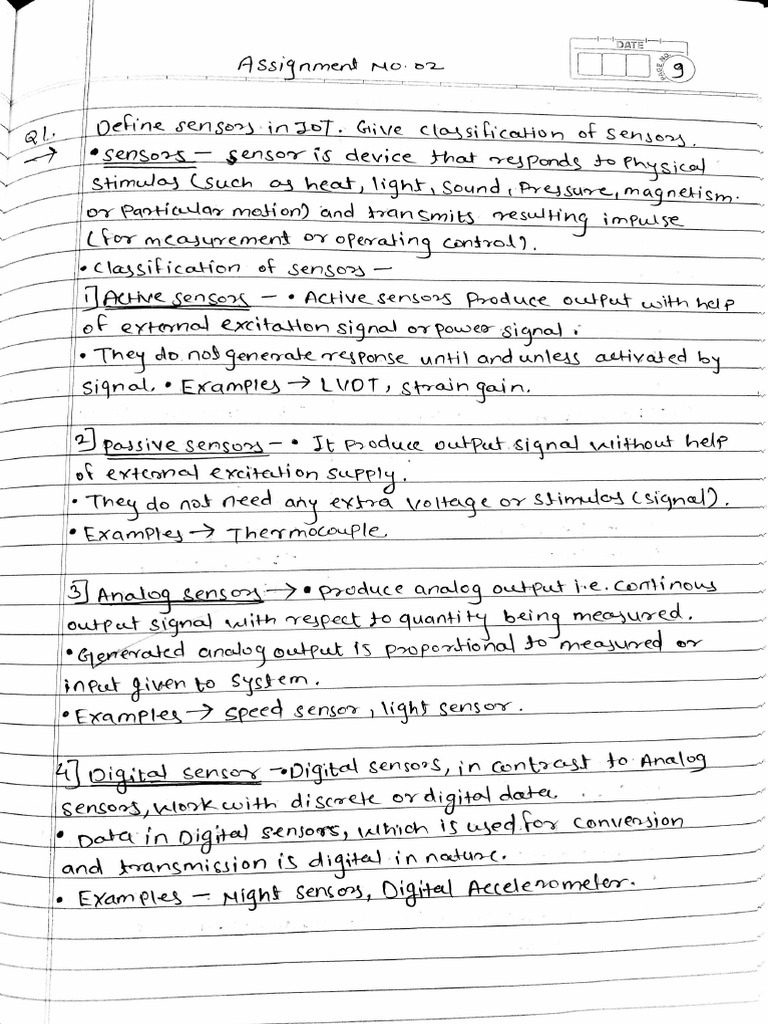 Assignment No. 02
DATE
PAGE NO.
9
Q1. Define sensors in IOT. Give classification of sensors.
→ • sensors – sensor is device that responds to physical
stimulas (such as heat, light, sound, pressure, magnetism
or particular motion) and transmits resulting impulse
(for measurement or operating control).
• Classification of sensors –
1] Active sensors – • Active sensors produce output with help
of external excitation signal or power signal.
• They do not generate response until and unless activated by
signal. • Examples → LVDT, strain gain.
2] passive sensors – • It produce output signal without help
of external excitation supply.
• They do not need any extra voltage or stimulas (signal).
• Examples → Thermocouple.
3] Analog sensors → • produce analog output i.e. continous
output signal with respect to quantity being measured.
• Generated analog output is proportional to measured or
input given to system.
• Examples → speed sensor, light sensor.
4] Digital sensor → Digital sensors, in contrast to Analog
sensors, work with discrete or digital data.
• Data in Digital sensors, which is used for conversion
and transmission is digital in nature.
• Examples – Might sensors, Digital Accelerometer.